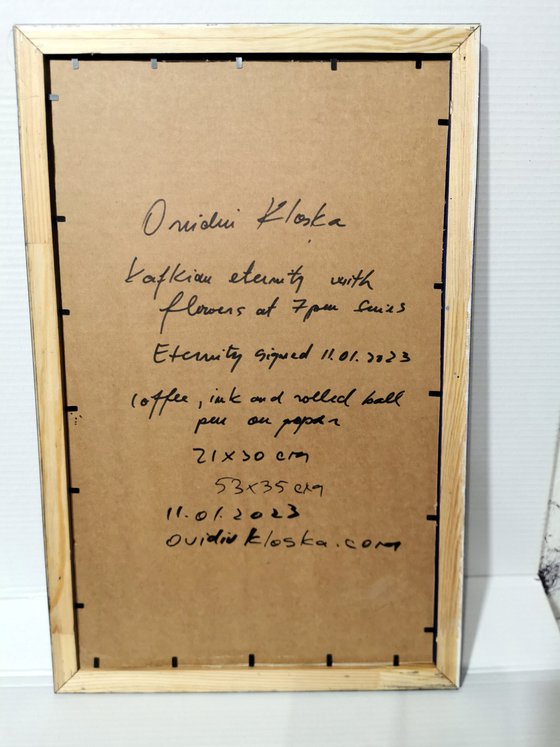 Ovidiu Kloska
Kafkian eternity with
flowers at 7pm series
Eternity signed 11.01.2023
coffee, ink and rolled ball
pen on paper
21x30 cm
53x35 cm
11.01.2023
ovidiukloska.com